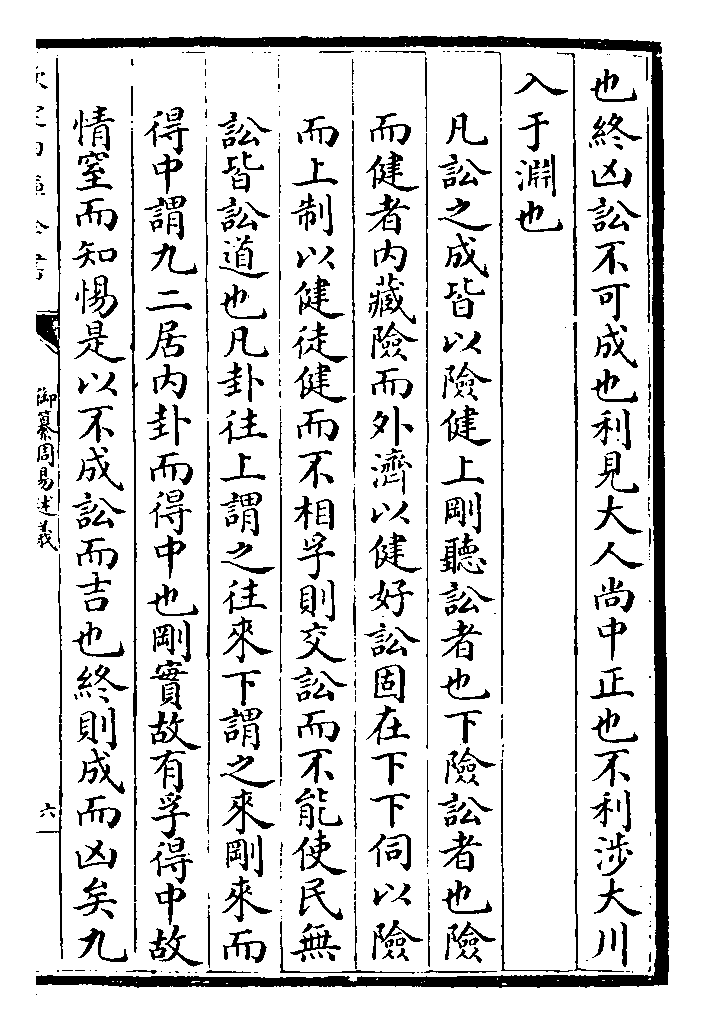 也終凶訟不可成也利見大人尚中正也不利涉大川
入于淵也
凡訟之成皆以險健上剛聽訟者也下險訟者也險
而健者内藏險而外濟以健好訟固在下下伺以險
而上制以健徒健而不相孚則交訟而不能使民無
訟皆訟道也凡卦往上謂之往來下謂之來剛來而
得中謂九二居内卦而得中也剛實故有孚得中故
情窒而知惕是以不成訟而吉也終則成而凶矣九
御纂周易述義
六